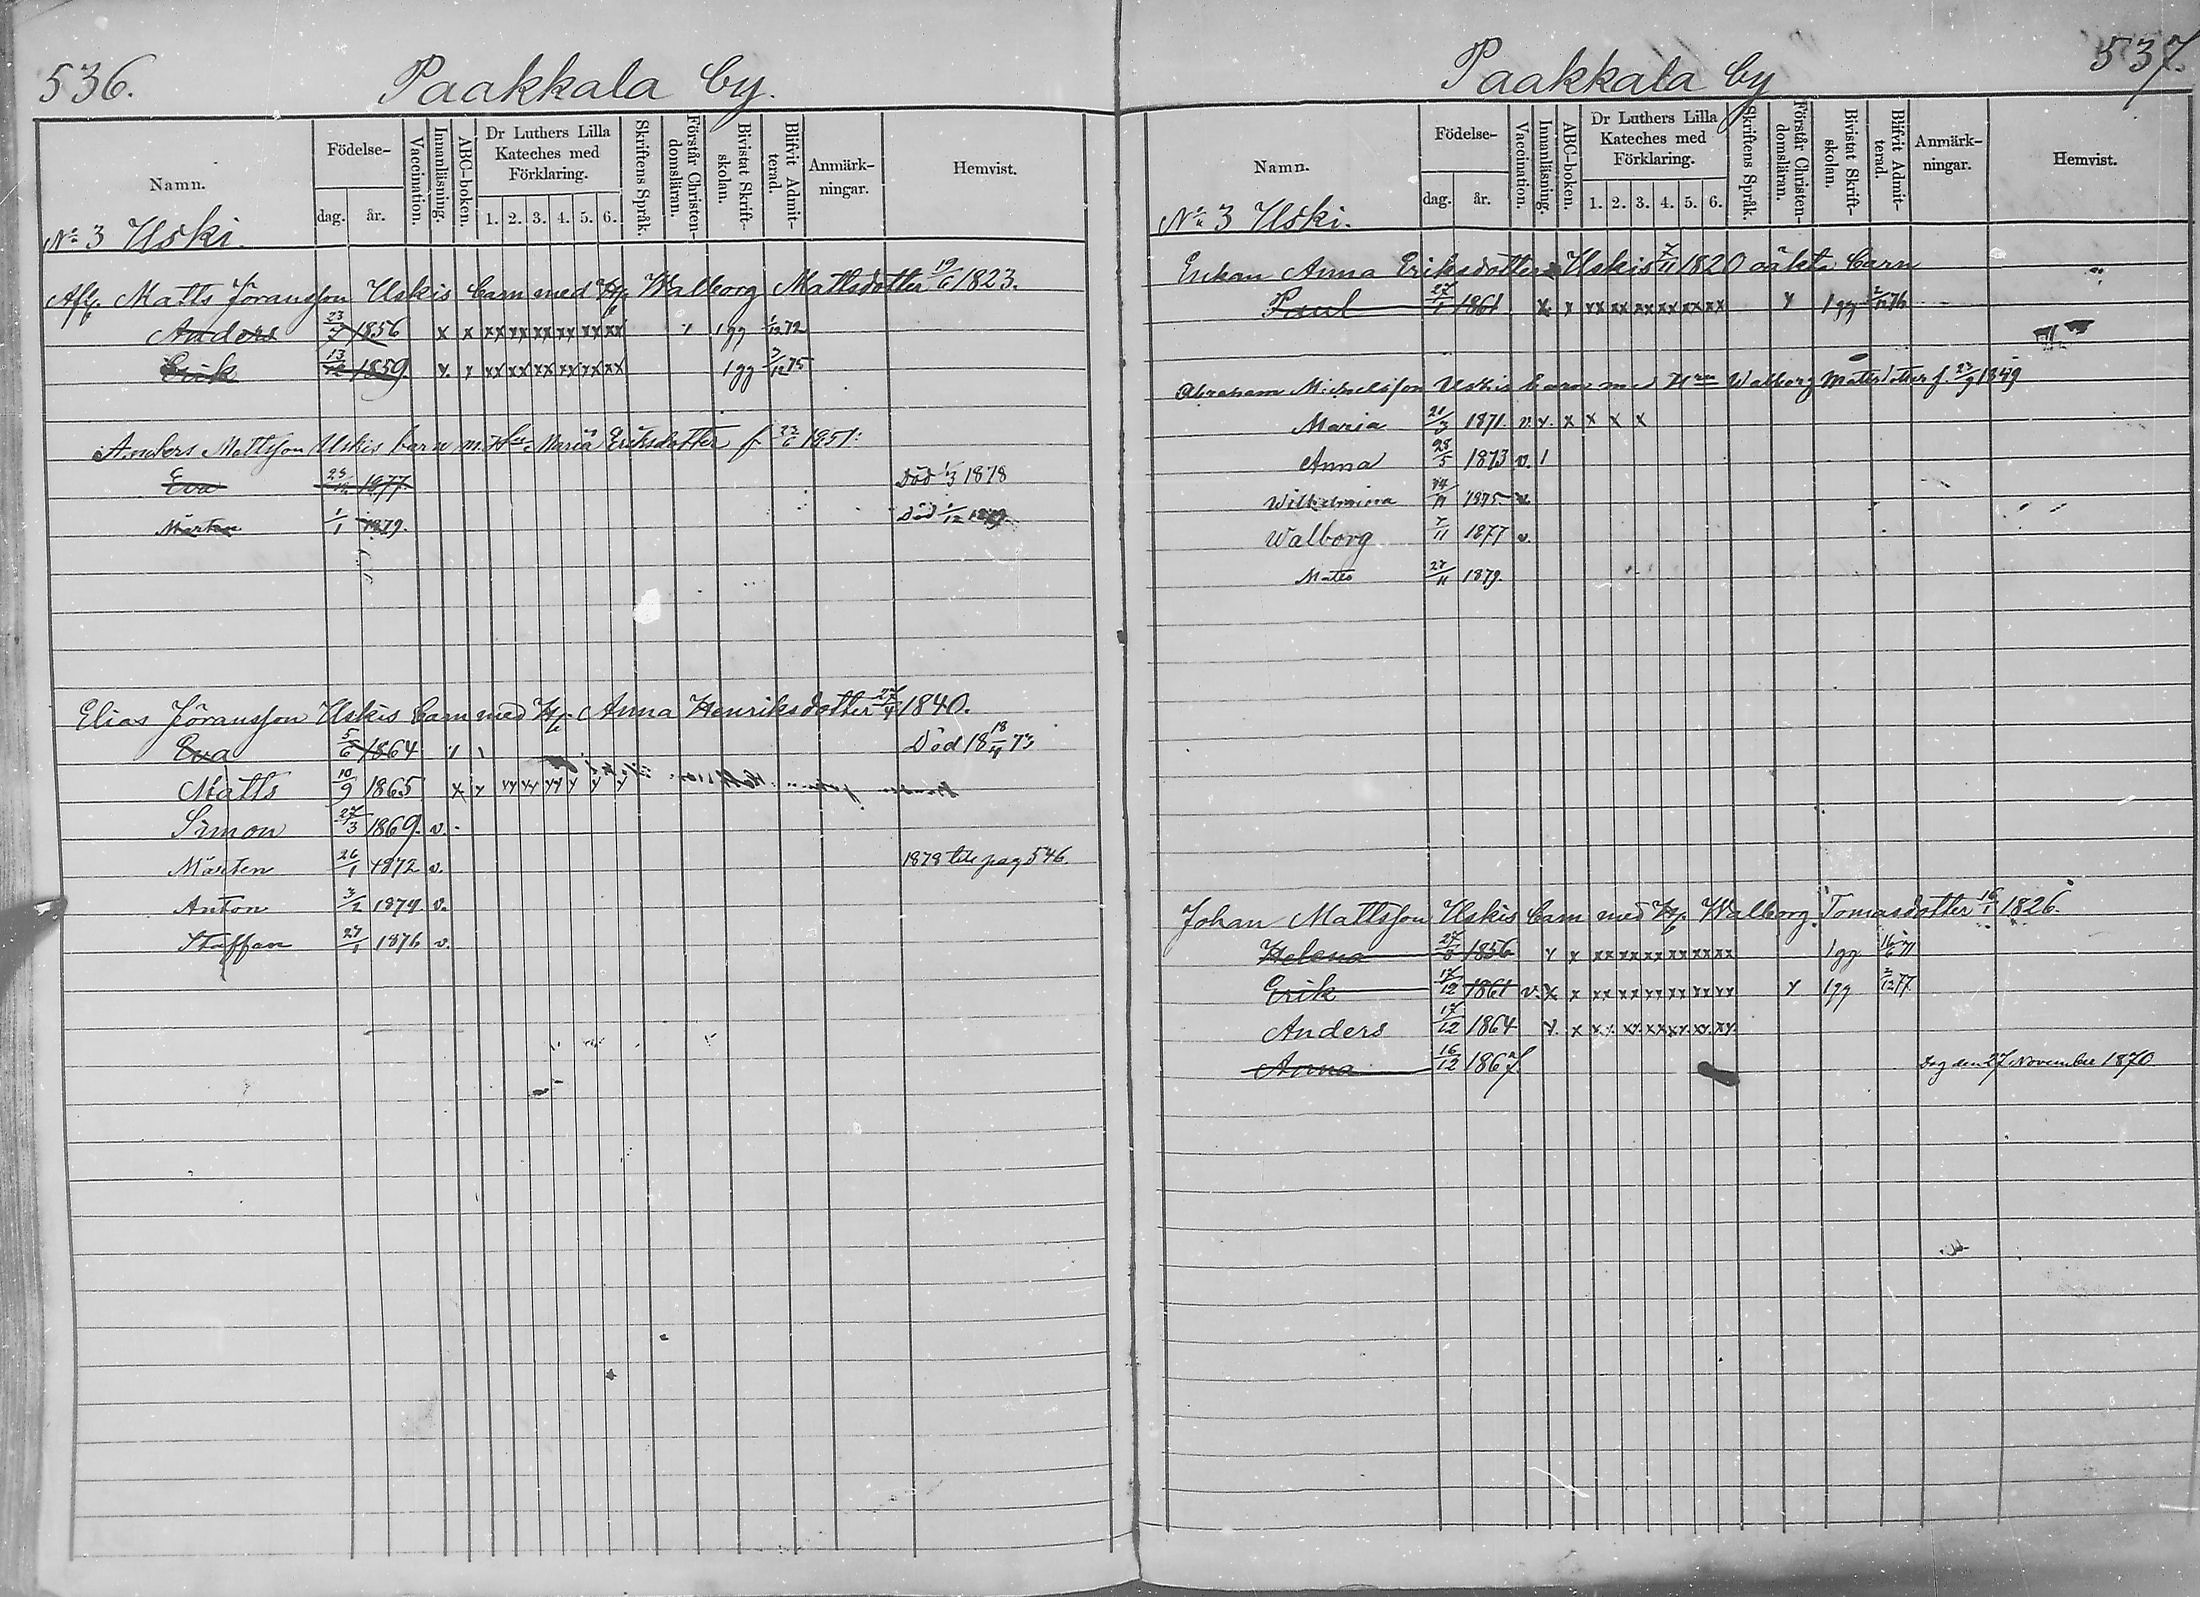 536.
Paakkala by.
Namn.
Födelse-
dag.
år.
Vaccination.
Innanläsning.
ABC-boken.
Dr Luthers Lilla Kateches med Förklaring.
1. 2. 3. 4. 5. 6.
Skriftens Språk.
Förstår Christen-domsläran.
Bivistat Skrift-skolan.
Blifvit Admit-terad.
Anmärk-ningar.
Hemvist.
No 3 Uski.
Afl. Matts Göransson Uskis barn med H. Walborg Mattsdotter 19/6 1823.
Anders 23/7 1856 x x xx xx xx xx xx xx 1 gg 1/12 72
Erik 13/12 1859. x xx xx xx xx xx xx 1 gg 3/12 75
Anders Mattsson Uskis barn m. Maria Eriksdotter f. 22/6 1851.
Eva 1877. Död 1/3 1878
Mårten 1/1 1879. Död 1/12 1879.
Elias Göransson Uskis barn med H. Anna Henriksdotter 27/4 1840.
Eva 5/6 1864 Död 18 18/4 73
Matts 10/9 1865 x
Simon 27/3 1869. v.
Mårten 26/1 1872 v. 1878 till pag 546.
Anton 3/2 1874. v.
Staffan 27/1 1876 v.
537.
Paakkala by
Namn.
Födelse-
dag.
år.
Vaccination.
Innanläsning.
ABC-boken.
Dr Luthers Lilla Kateches med Förklaring.
1. 2. 3. 4. 5. 6.
Skriftens Språk.
Förstår Christen-domsläran.
Bivistat Skrift-skolan.
Blifvit Admit-terad.
Anmärk-ningar.
Hemvist.
No 3 Uski.
Enkan Anna Eriksdotter Uskis 7/11 1820 oäkta barn
Paul 27/1 1861 x x xx xx xx xx xx xx 1 gg 2/12 76
Abraham Michelsson Uskis barn med Walborg Matsdotter f. 1849
Maria 21/3 1871. v. x x x x
Anna 28/5 1873 v.
Wilhelmina 14/11 1875 v.
Walborg 7/11 1877 v.
Mats 27/11 1879.
Johan Mattsson Uskis barn med H. Walborg Tomasdotter 16/1 1826.
Helena 1856 x xx xx xx xx xx xx 1 gg 16/6 71
Erik 17/12 1861 v. x x xx xx xx xx xx xx 1 gg 2/12 77
Anders 17/12 1864 x
Anna 16/12 1867. Dog den 27 November 1870